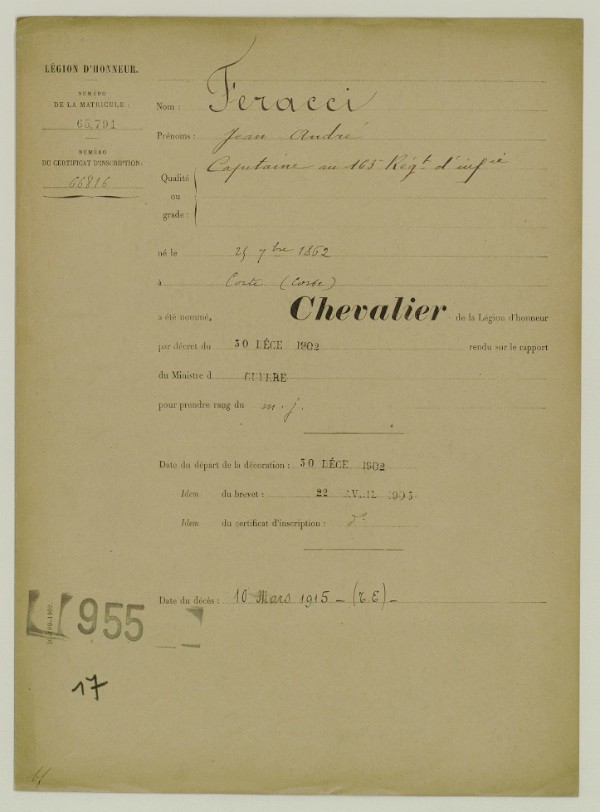 LÉGION D'HONNEUR.
NUMÉRO
DE LA MATRICULE :
65,791
NUMÉRO
DU CERTIFICAT D'INSCRIPTION:
66816
Nom : Feracci
Prénoms : Jean André
Qualité ou grade : Capitaine au 165 Régt d'infie
né le 25 7bre 1862
à Corte (Corse)
a été nommé, Chevalier de la Légion d'honneur
par décret du 30 DÉCE 1902 rendu sur le rapport
du Ministre d GUERRE
pour prendre rang du m. j.
Date du départ de la décoration : 30 DÉCE 1902
Idem du brevet : 22 AVRIL 1903
Idem du certificat d'inscription : do
Date du décès : 10 Mars 1915 – (T. E) –
955
17